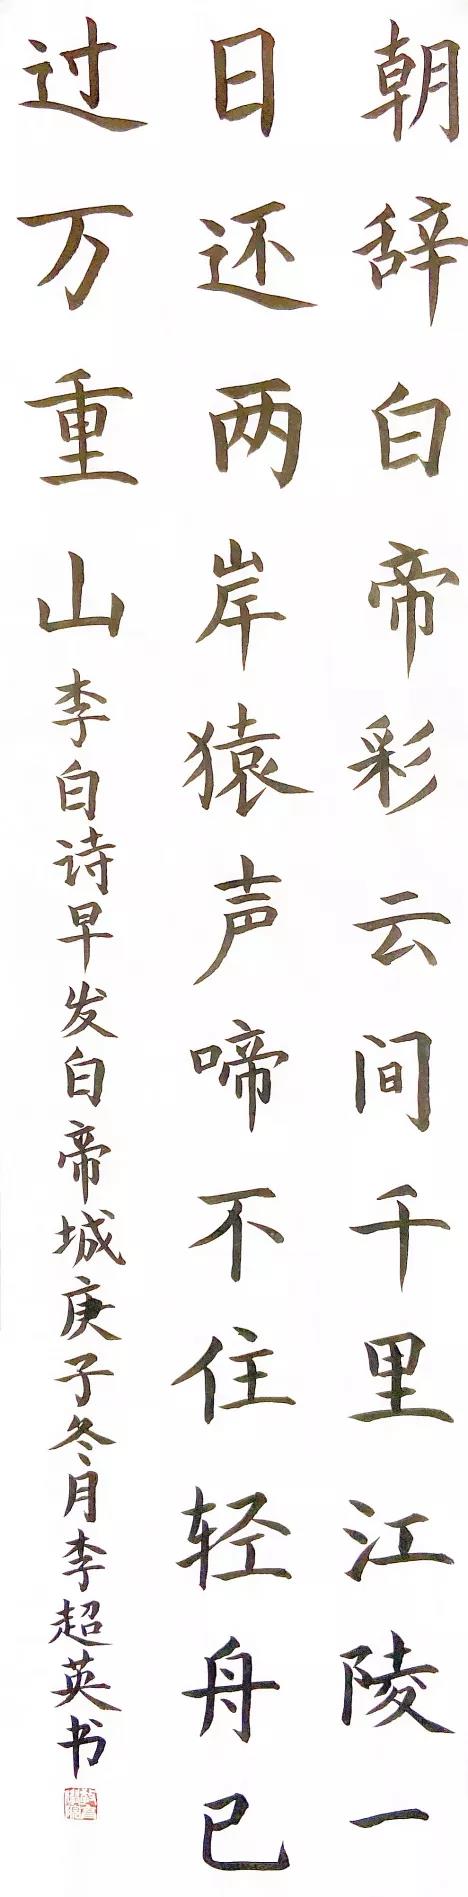 朝辞白帝彩云间千里江陵一
日还两岸猿声啼不住轻舟已
过万重山李白诗早发白帝城庚子冬月李超英书